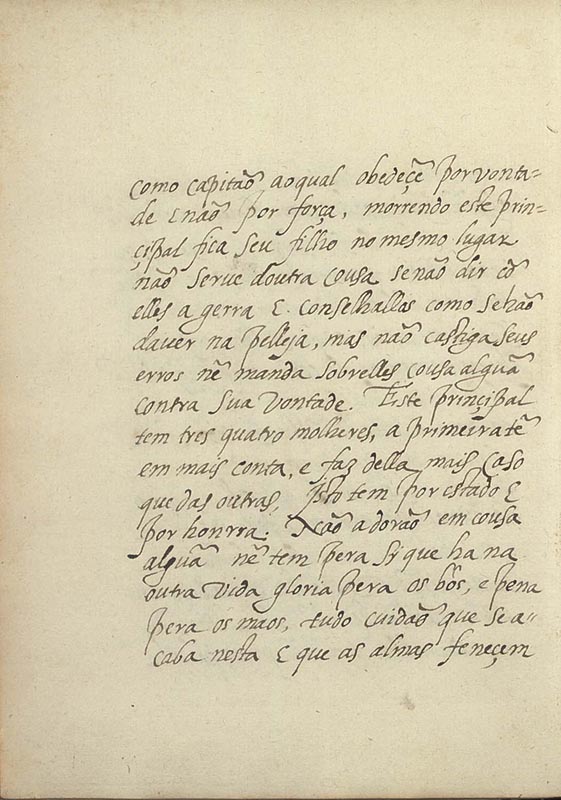 como capitaõ aoqual obedeçẽ por vonta=
de E naõ por força, morrendo este prin=
çipal fica seu filho no mesmo lugar
naõ serve doutra cousa senaõ dir cõ
elles a gerra E conselhallos como se haõ
daver na pelleja, mas naõ castiga seus
erros nẽ manda sobrelles cousa alguã
contra sua vontade. Este prinçipal
tem tres quatro molheres, a primeira tẽ
em mais conta, e faz della mais caso
que das outras, Isto tem por estado E
por honrra. Naõ adoraõ em cousa
alguã nẽ tem pera si que ha na
outra vida gloria pera os bõs, e pena
pera os maos, tudo cuidaõ que se a=
caba nesta E que as almas feneçem